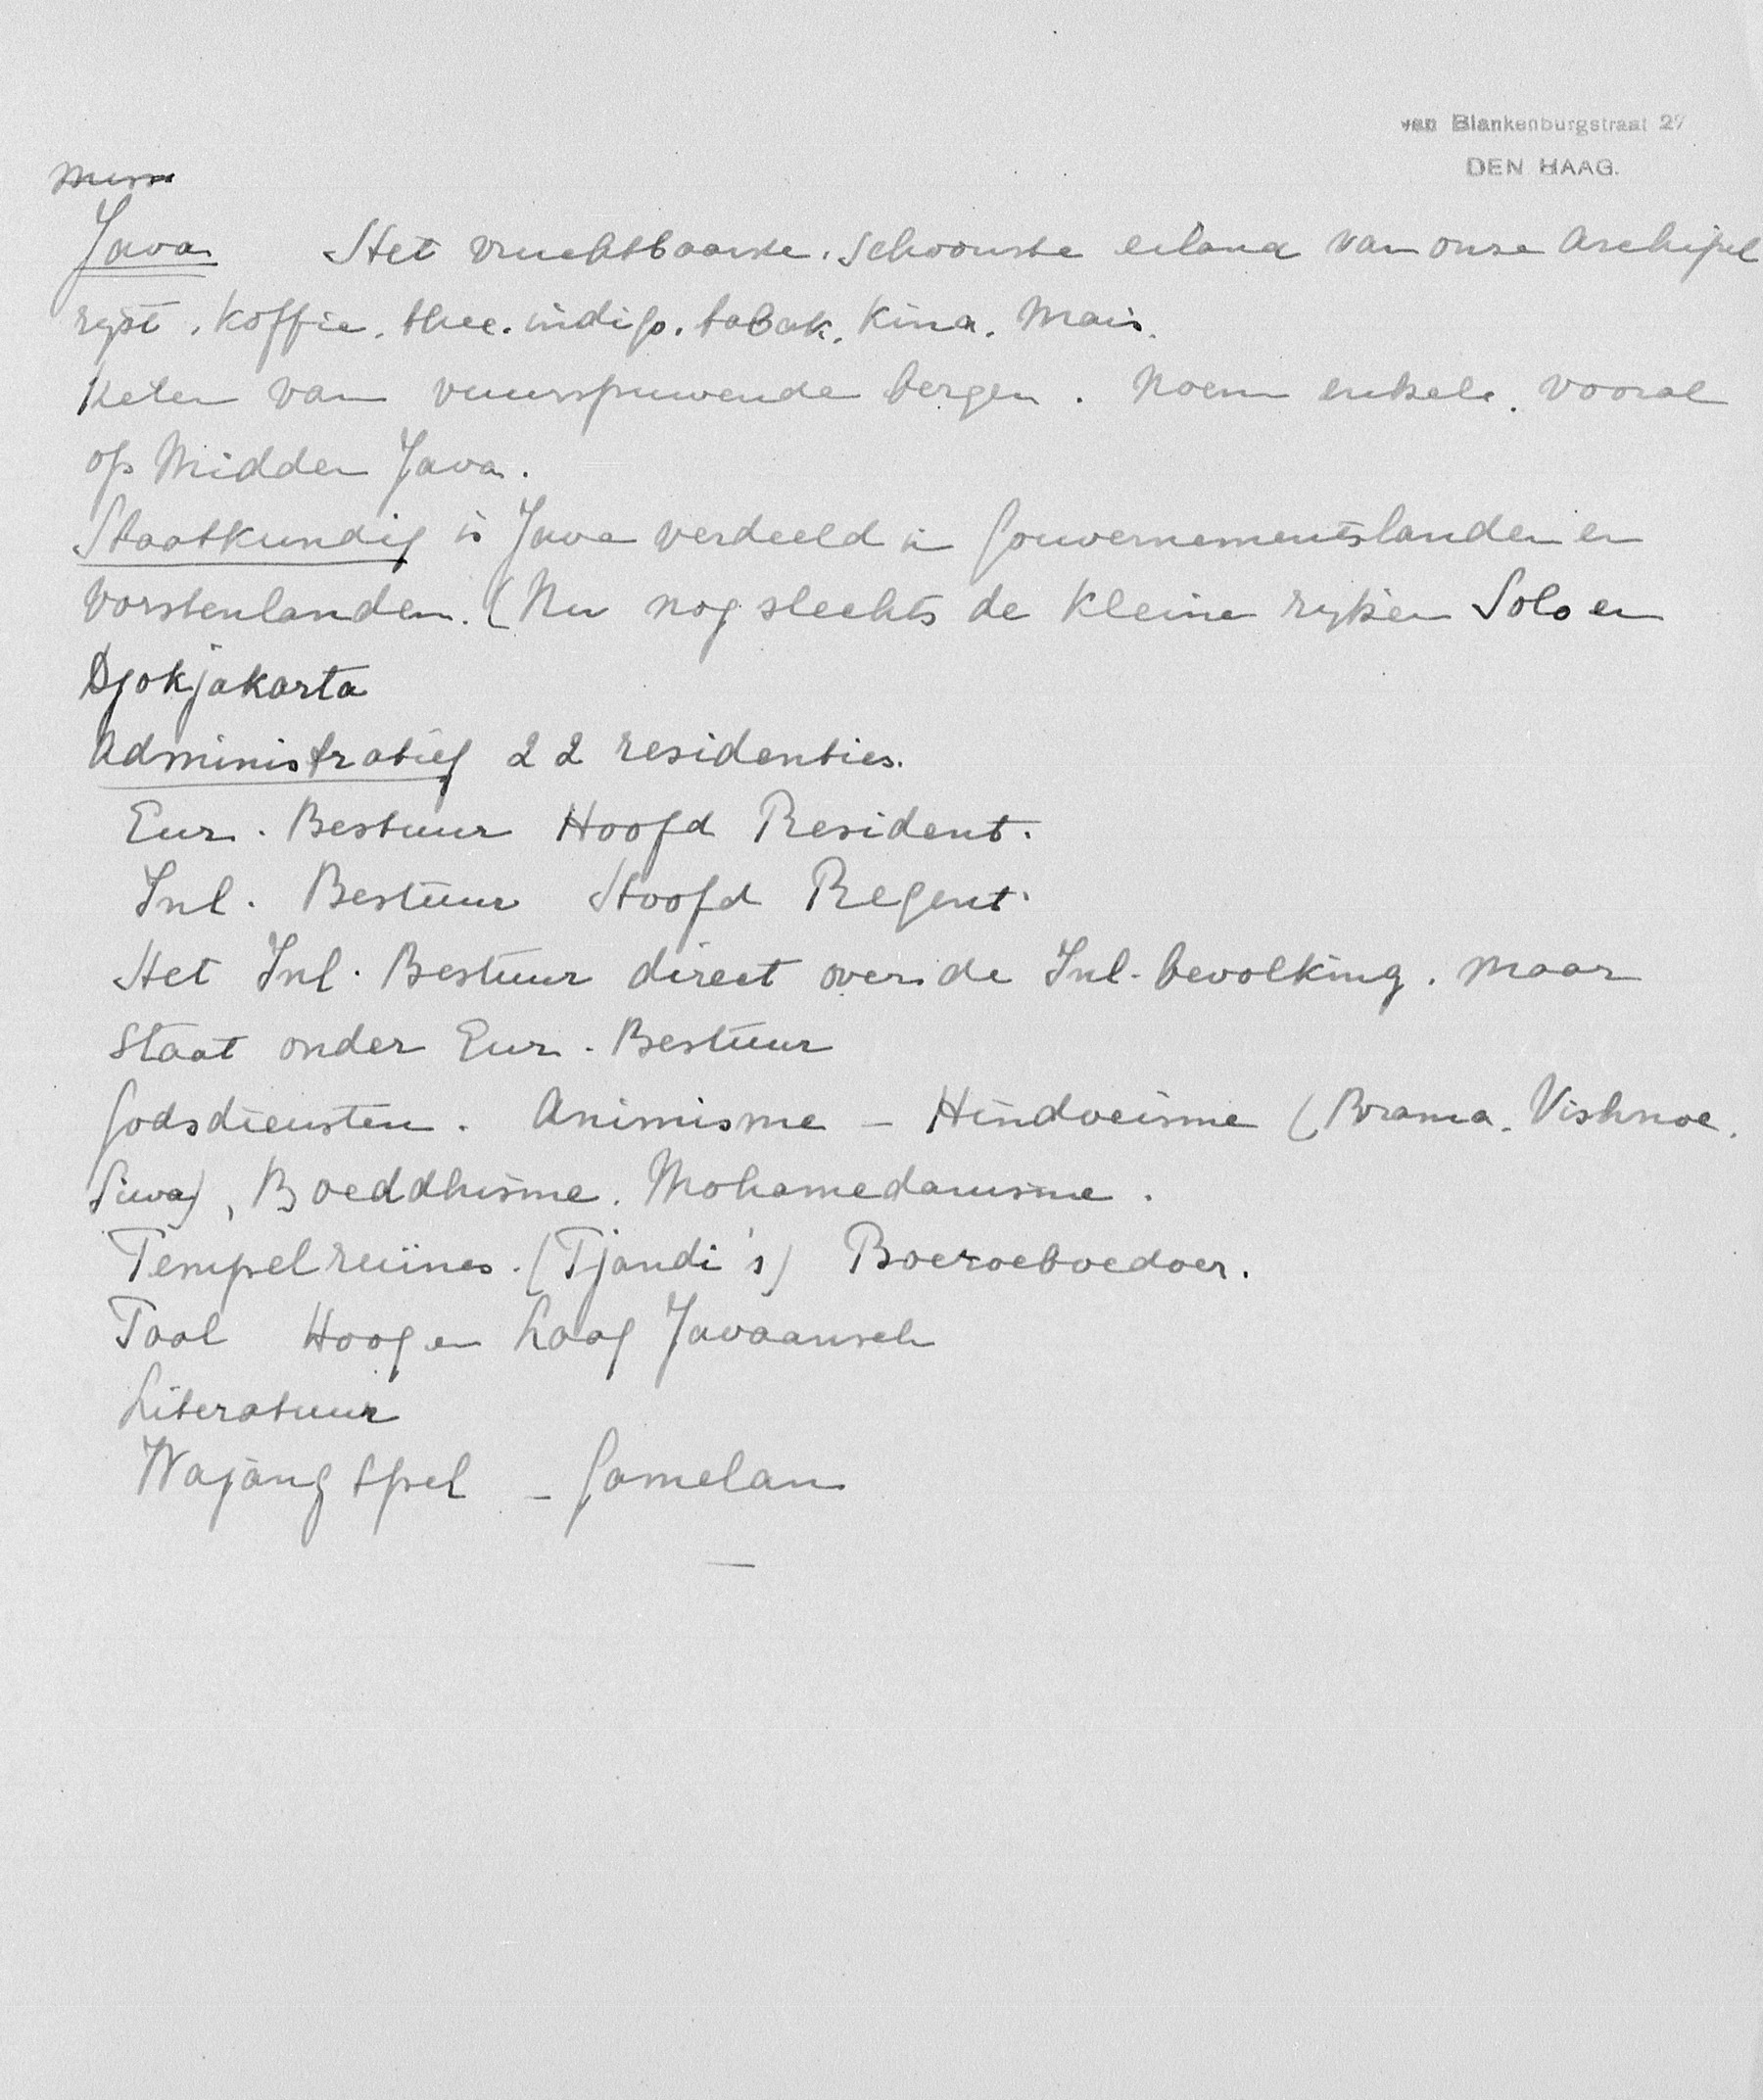 van Blankenburgstraat 27
DEN HAAG.
Java Het vruchtbaarste, schoonste eiland van onze Archipel
rijst, koffie, thee, indigo, tabak, kina, mais.
Keten van vuurspuwende bergen. Noem enkele, vooral
op Midden Java.
Staatkundig is Java verdeeld in Gouvernementslanden en
Vorstenlanden. (Nu nog slechts de kleine rijken Solo en
Djokjakarta
Administratief 22 residenties.
Eur. Bestuur Hoofd Resident.
Inl. Bestuur Hoofd Regent.
Het Inl. Bestuur direct over de Inl. bevolking, maar
staat onder Eur. Bestuur
Godsdiensten. Animisme - Hindoeisme (Brama. Vishnoe.
Siwa), Boeddhisme. Mohamedanisme.
Tempelreuïnes. (Tjandi's) Boeroeboedoer.
Taal Hoog en Laag Javaansch
Literatuur
Wajang spel - Gamelan